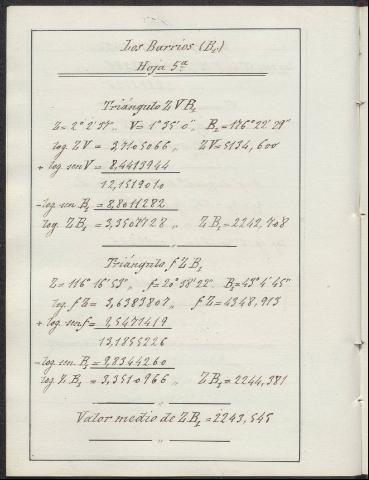 Los Barrios (B₂)
Hoja 5ª
Triángulo Z V B₂
Z = 2° 2' 37" V = 1° 35' 0" B₂ = 176° 22' 23"
log. Z V = 3,7105066 " Z V = 5134,600
+ log. sen V = 8,4413944
12,1519010
- log. sen B₂ = 8,8011282
log. Z B₂ = 3,3507728 " Z B₂ = 2242,708
"
Triángulo f Z B₂
Z = 116° 16' 53" f = 20° 38' 22" B₂ = 43° 4' 45"
log. f Z = 3,6383807 " f Z = 4348,913
+ log. sen f = 9,5471419
13,1855226
- log. sen B₂ = 9,8344260
log. Z B₂ = 3,3510966 " Z B₂ = 2244,381
"
Valor medio de Z B₂ = 2243,545
"